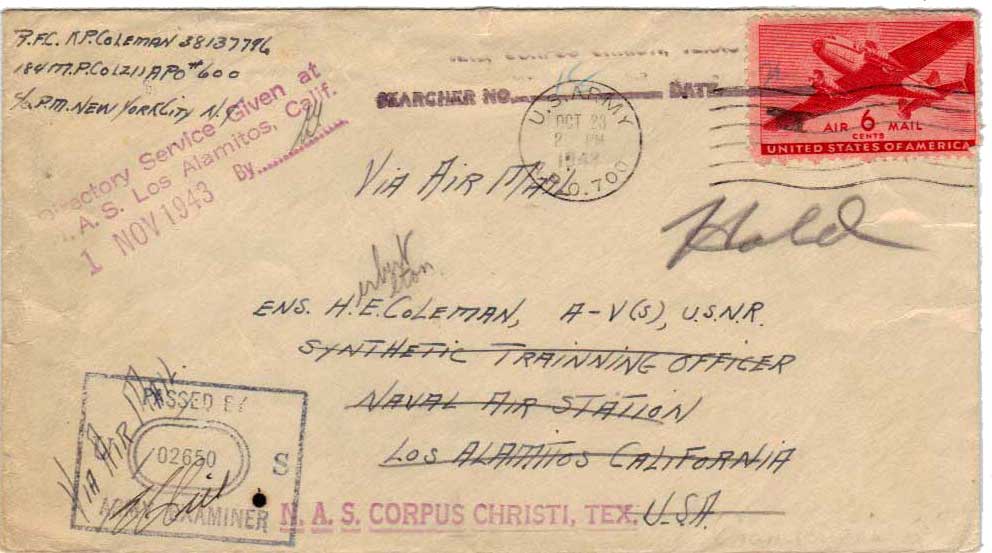 P.F.C. K.P. COLEMAN 38137796
184 M.P. CO (211) APO #600
c/o P.M. NEW YORK CITY N.Y.
Directory Service Given at
N. A. S. Los Alamitos, Calif.
1 NOV 1943 By
CORPUS CHRISTI, TEXAS
SEARCHER NO. DATE
U.S. ARMY
OCT 23
PM
1943
A.P.O. 700
AIR 6 MAIL
CENTS
UNITED STATES OF AMERICA
VIA AIR MAIL
Hold
ENS. H.E. COLEMAN, A-V(S), U.S.N.R.
SYNTHETIC TRAINNING OFFICER
NAVAL AIR STATION
LOS ALAMITOS CALIFORNIA
U.S.A.
N. A. S. CORPUS CHRISTI, TEX.
VIA AIR MAIL
PASSED BY
02650 S
ARMY EXAMINER